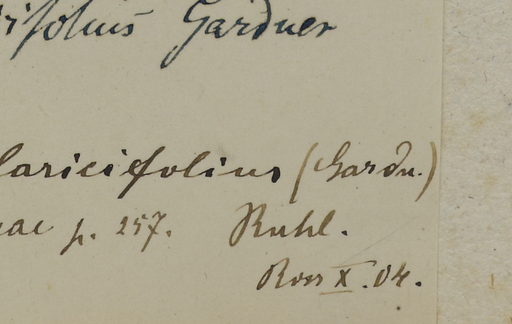 rifolius Gardner
laricifolius (Gardn.)
eae p. 257. Ruhl.
X.04.